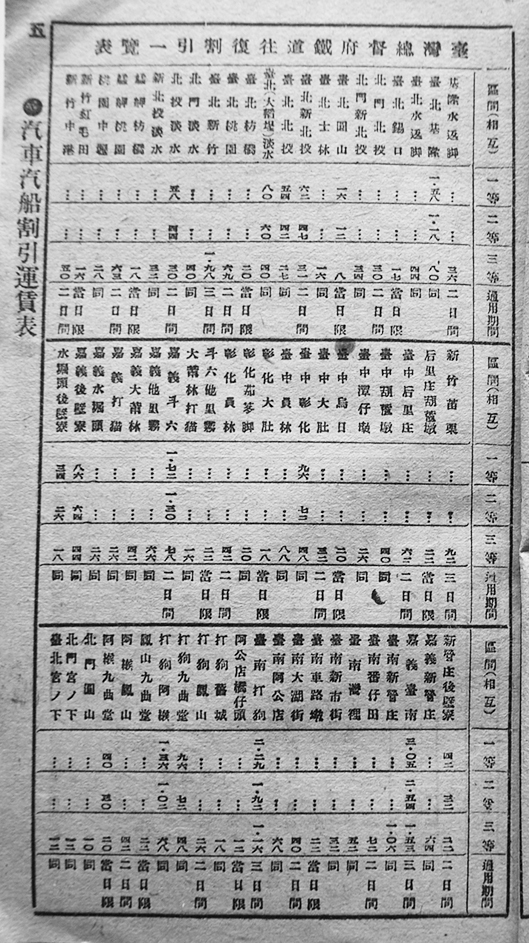 五
●汽車汽船割引運賃表
臺灣總督府鐵道往復割引一覽表
區間(相互) 一等 二等 三等 通用期間
基隆水返脚 … … 三六 二日間
臺北基隆 一・五八 一・一八 八〇 同
臺北水返脚 … … 四四 同
臺北錫口 … … 一七 當日限
北門北投 … … 三〇 二日間
北門新北投 … … 同
臺北圓山 一六 一二 八 當日限
臺北士林 … … 一六 同
臺北新北投 六二 四七 三一 二日間
臺北北投 五四 二七 同
臺北(大稻埕)淡水 八〇 六〇 四〇 同
臺北枋橋 … … 二〇 當日限
臺北桃園 … … 六九 二日間
臺北新竹 … … 一・九八 三日間
北門淡水 … … 同
北投淡水 五八 四四 三〇 二日間
新北投淡水 … … 三二 同
艋舺枋橋 … … 一八 當日限
艋舺桃園 … … 六三 二日間
桃園中壢 … … 二八 同
新竹紅毛田 … … 一六 當日限
新竹中港 … … 五〇 二日間
區間(相互) 一等 二等 三等 通用期間
新竹苗栗 … … 九二 三日間
后里庄葫蘆墩 … … 二二 當日限
臺中后里庄 … … 六二 二日間
臺中葫蘆墩 … … 四〇 同
臺中潭仔墘 … … 二六 同
臺中烏日 … … 二〇 當日限
臺中大肚 … … 三二 二日間
臺中彰化 九六 七二 四八 同
臺中員林 … … 八八 同
彰化大肚 … … 一八 當日限
彰化茄苳脚 … … 二〇 同
彰化員林 … … 四二 二日間
斗六他里霧 … … 二二 當日限
大莆林打猫 … … 一六 同
嘉義斗六 一・七二 一・三〇 七八 二日間
嘉義他里霧 … … 六六 同
嘉義大莆林 … … 四二 同
嘉義打猫 … … 二六 同
嘉義水堀頭 … … 二六 同
嘉義後壁寮 八六 六四 四四 同
水堀頭後壁寮 三四 二六 一八 同
區間(相互) 一等 二等 三等 通用期間
新營庄後壁寮 四二 三二 二二 二日間
嘉義新營庄 … … 六四 同
嘉義臺南 三・〇五 二・五四 一・五三 三日間
臺南新營庄 … … 一・〇六 同
臺南番仔田 … … 七二 二日間
臺南灣裡 … … 五二 同
臺南新市街 … … 三二 同
臺南車路墘 … … 二二 當日限
臺南大湖街 … … 四〇 二日間
臺南阿公店 … … 六八 同
臺南打狗 二・二九 一・九二 一・一六 三日間
阿公店橋仔頭 … … 一二 當日限
打狗舊城 … … 一八 同
打狗九曲堂 九六 七二 四八 同
打狗阿緱 一・三六 一・〇二 六八 同
鳳山九曲堂 … … 二二 當日限
阿緱鳳山 … … 四二 二日間
阿緱九曲堂 四〇 三〇 二〇 當日限
北門圓山 … … 一〇 同
北門宮ノ下 … … 一二 同
臺北宮ノ下 … … 一二 同